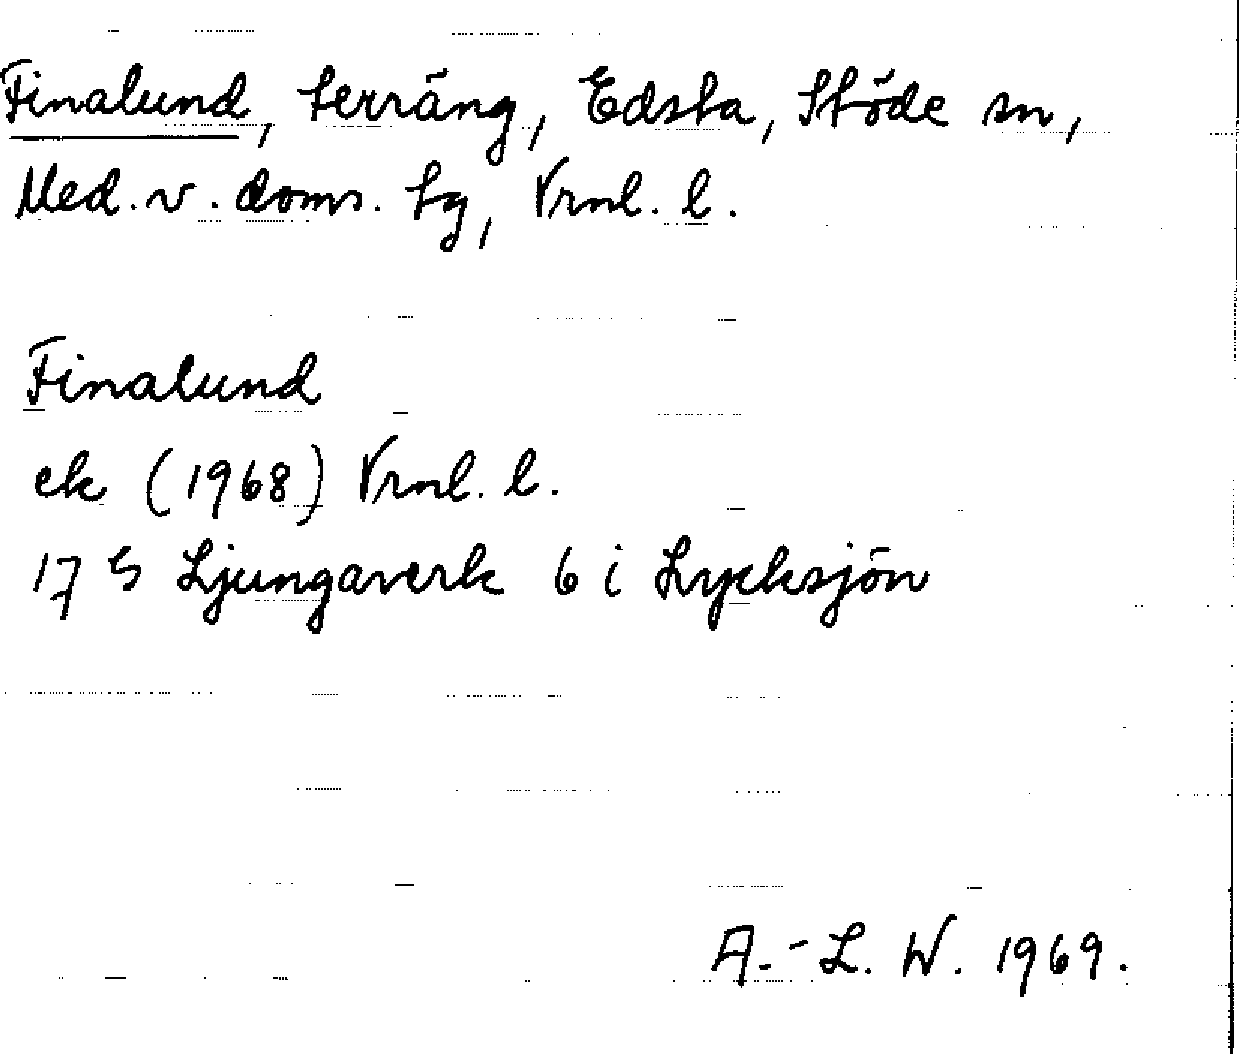 Finalund, terräng, Edsta, Stöde sn,
Med. v. doms. tg, Vrnl. l.
Finalund
ek (1968) Vrnl. l.
17 G Ljungaverk 6 i Lycksjön
A.-L. W. 1969.